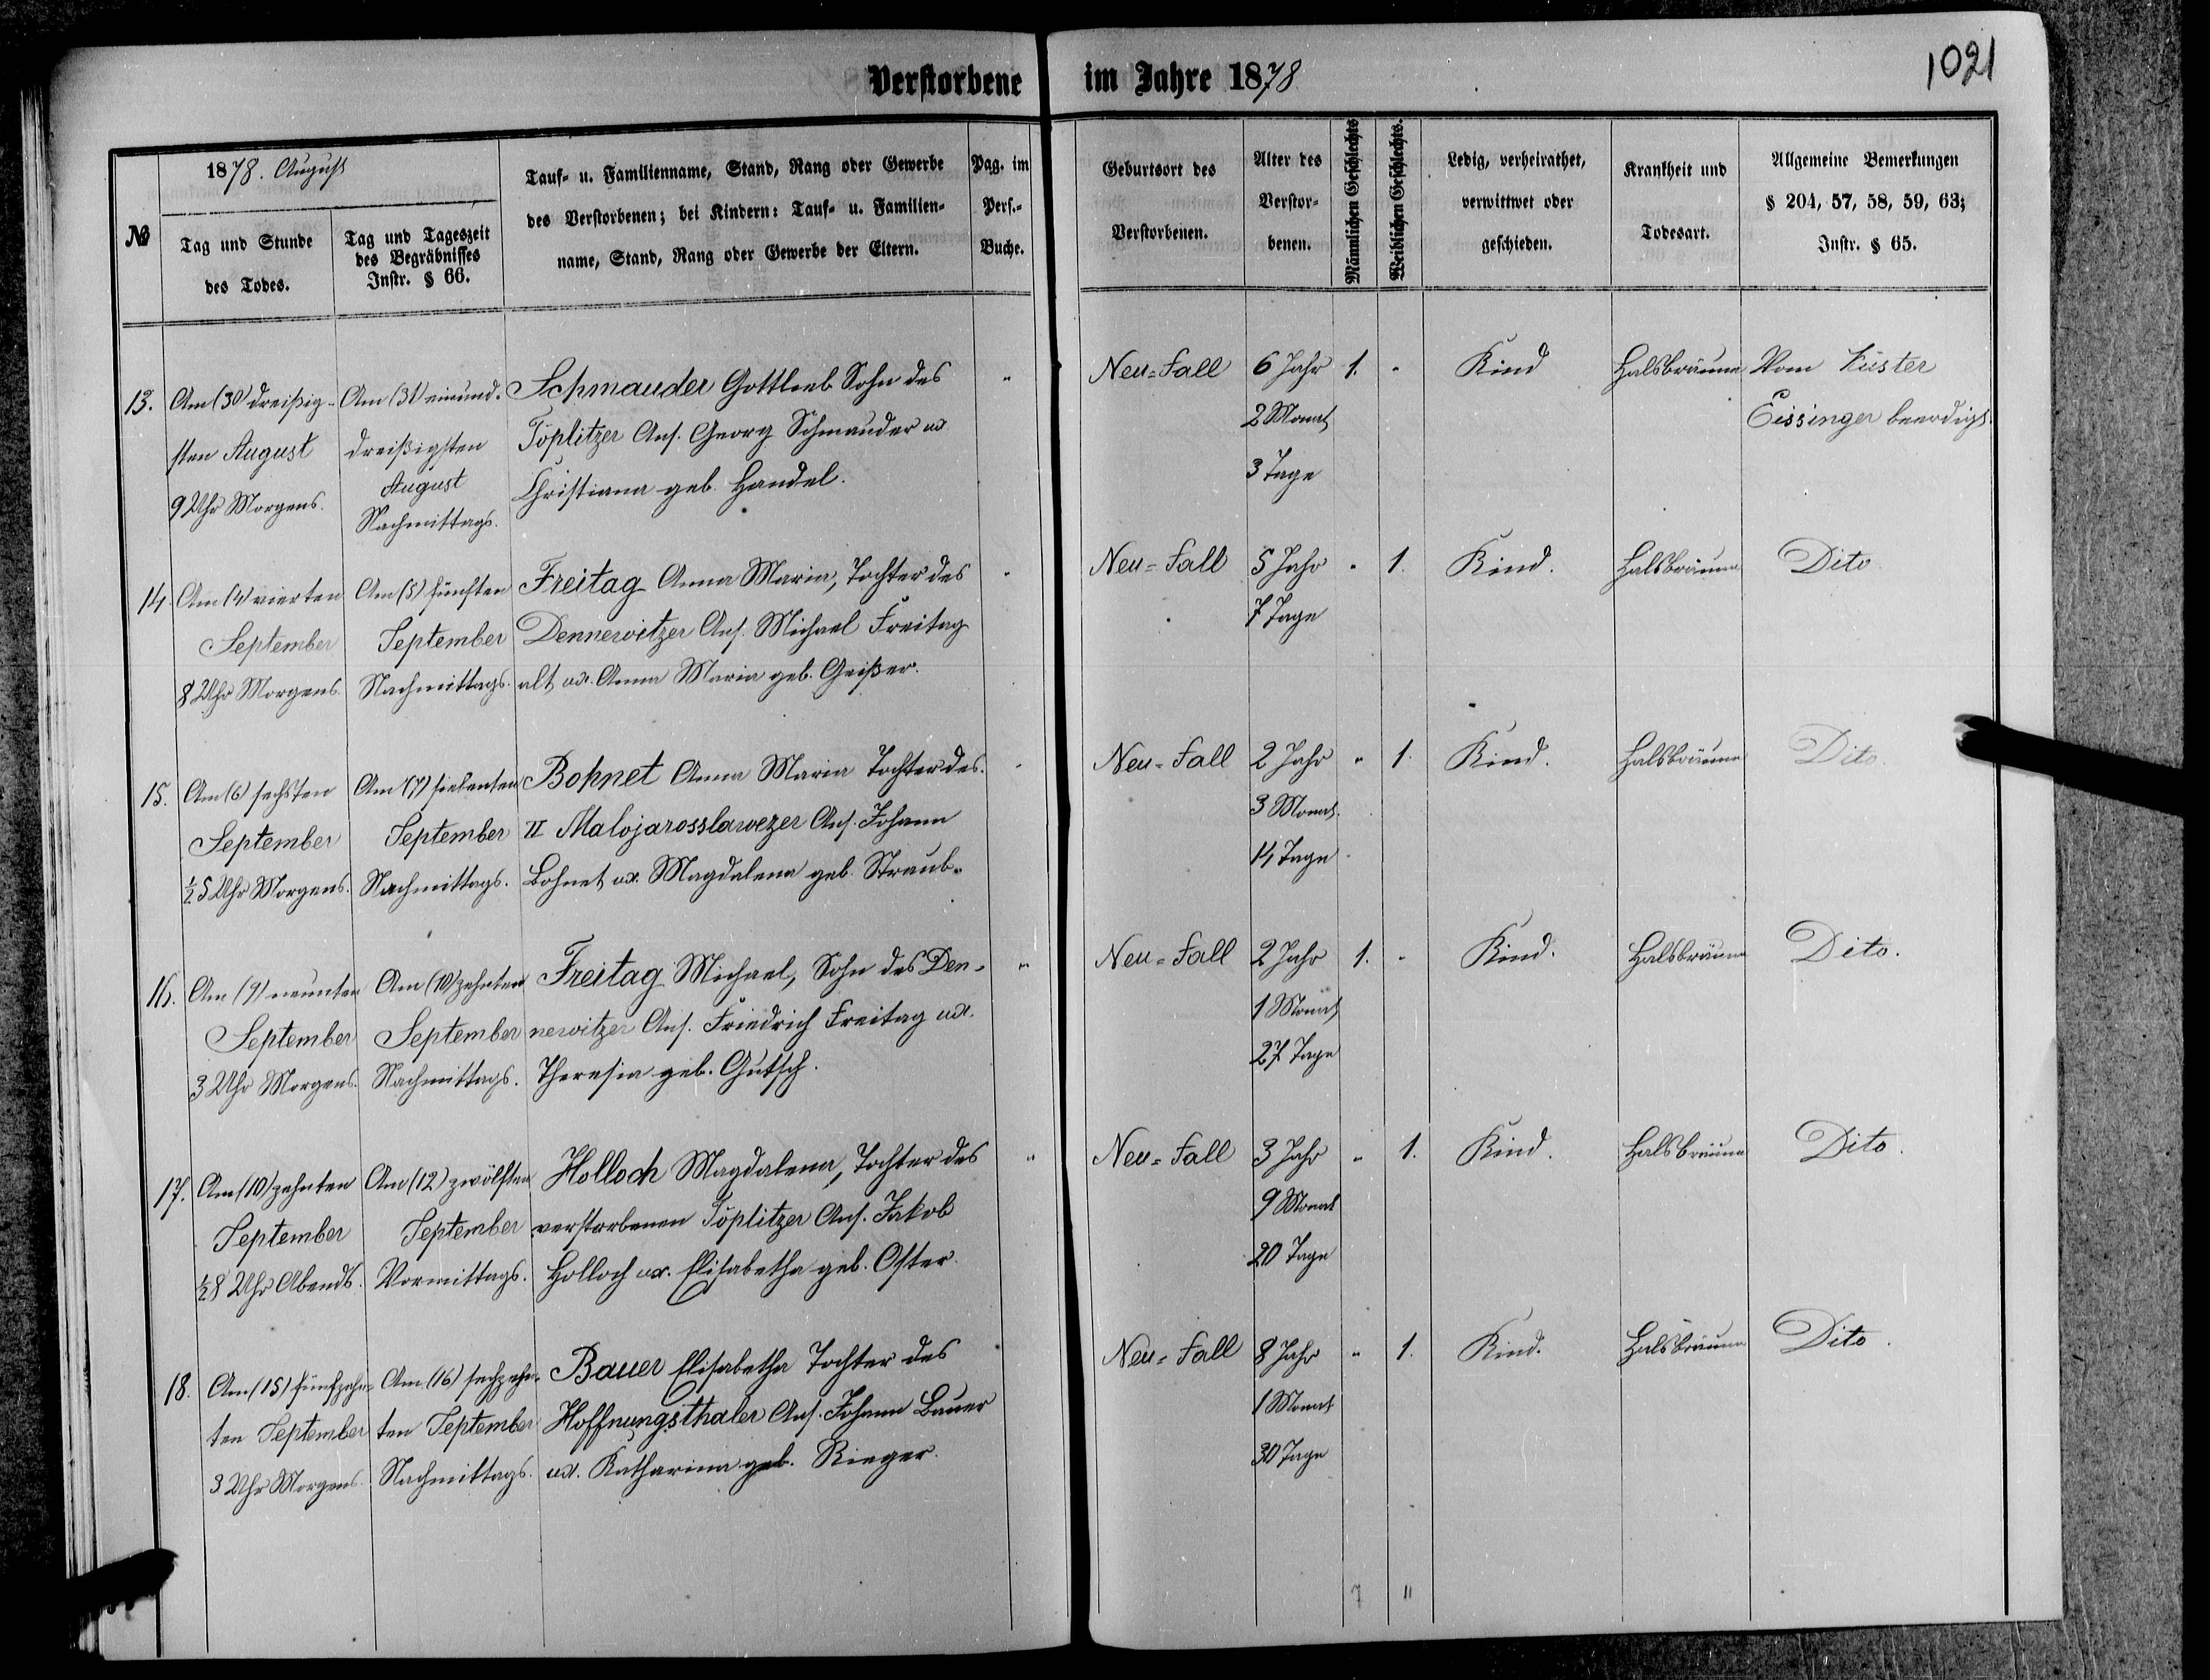 Verstorbene im Jahre 1878
1021
№
1878. August
Tag und Stunde
des Todes.
Tag und Tageszeit
des Begräbnisses
Instr. § 66.
Tauf- u. Familienname, Stand, Rang oder Gewerbe
des Verstorbenen; bei Kindern: Tauf- u. Familien-
name, Stand, Rang oder Gewerbe der Eltern.
Pag. im
Pers.-
Buche.
Geburtsort des
Verstorbenen.
Alter des
Verstor-
benen.
Männlichen Geschlechts
Weiblichen Geschlechts.
Ledig, verheirathet,
verwittwet oder
geschieden.
Krankheit und
Todesart.
Allgemeine Bemerkungen
§ 204, 57, 58, 59, 63;
Instr. § 65.
13.
Am (30) dreißig-
sten August
9 Uhr Morgens.
Am (31) einund-
dreißigsten
August
Nachmittags.
Schmauder Gottlieb Sohn des
Töplitzer Ans. Georg Schmauder ux
Christiana geb. Handel.
"
Neu-Fall
6 Jahr
2 Monat
3 Tage
1.
"
Kind
Halsbräune
Vom Küster
Eissinger beerdigt.
14.
Am (4) vierten
September
8 Uhr Morgens.
Am (5) fünften
September
Nachmittags.
Freitag Anna Maria, Tochter des
Dennewitzer Ans. Michael Freitag
alt ux. Anna Maria geb. Geißer.
"
Neu-Fall
5 Jahr
7 Tage
"
1.
Kind.
Halsbräune
Dito
15.
Am (6) sechsten
September
½5 Uhr Morgens.
Am (7) siebenten
September
Nachmittags.
Bohnet Anna Maria Tochter des
II Malojarosslawezer Ans. Johann
Bohnet ux. Magdalena geb. Straub.
"
Neu-Fall
2 Jahr
3 Monat.
14 Tage
"
1.
Kind.
Halsbräune
Dito.
16.
Am (9) neunten
September
3 Uhr Morgens.
Am (10) zehnten
September
Nachmittags.
Freitag Michael, Sohn des Den-
newitzer Ans. Friedrich Freitag ux.
Theresia geb. Gutsch.
"
Neu-Fall
2 Jahr
1 Monat
27 Tage
1.
"
Kind.
Halsbräune
Dito.
17.
Am (10) zehnten
September
½8 Uhr Abends.
Am (12) zwölften
September
Vormittags.
Holloch Magdalena, Tochter des
verstorbenen Töplitzer Ans. Jakob
Holloch ux. Elisabetha geb. Oster.
"
Neu-Fall
3 Jahr
9 Monat
20 Tage
"
1.
Kind.
Halsbräune
Dito.
18.
Am (15) fünfzehn-
ten September
3 Uhr Morgens.
Am (16) sechzehn-
ten September
Nachmittags.
Bauer Elisabetha Tochter des
Hoffnungsthaler Ans. Johann Bauer
ux. Katharina geb. Rieger.
Neu-Fall
8 Jahr
1 Monat
30 Tage
"
1.
Kind.
Halsbräune
Dito.
7
11